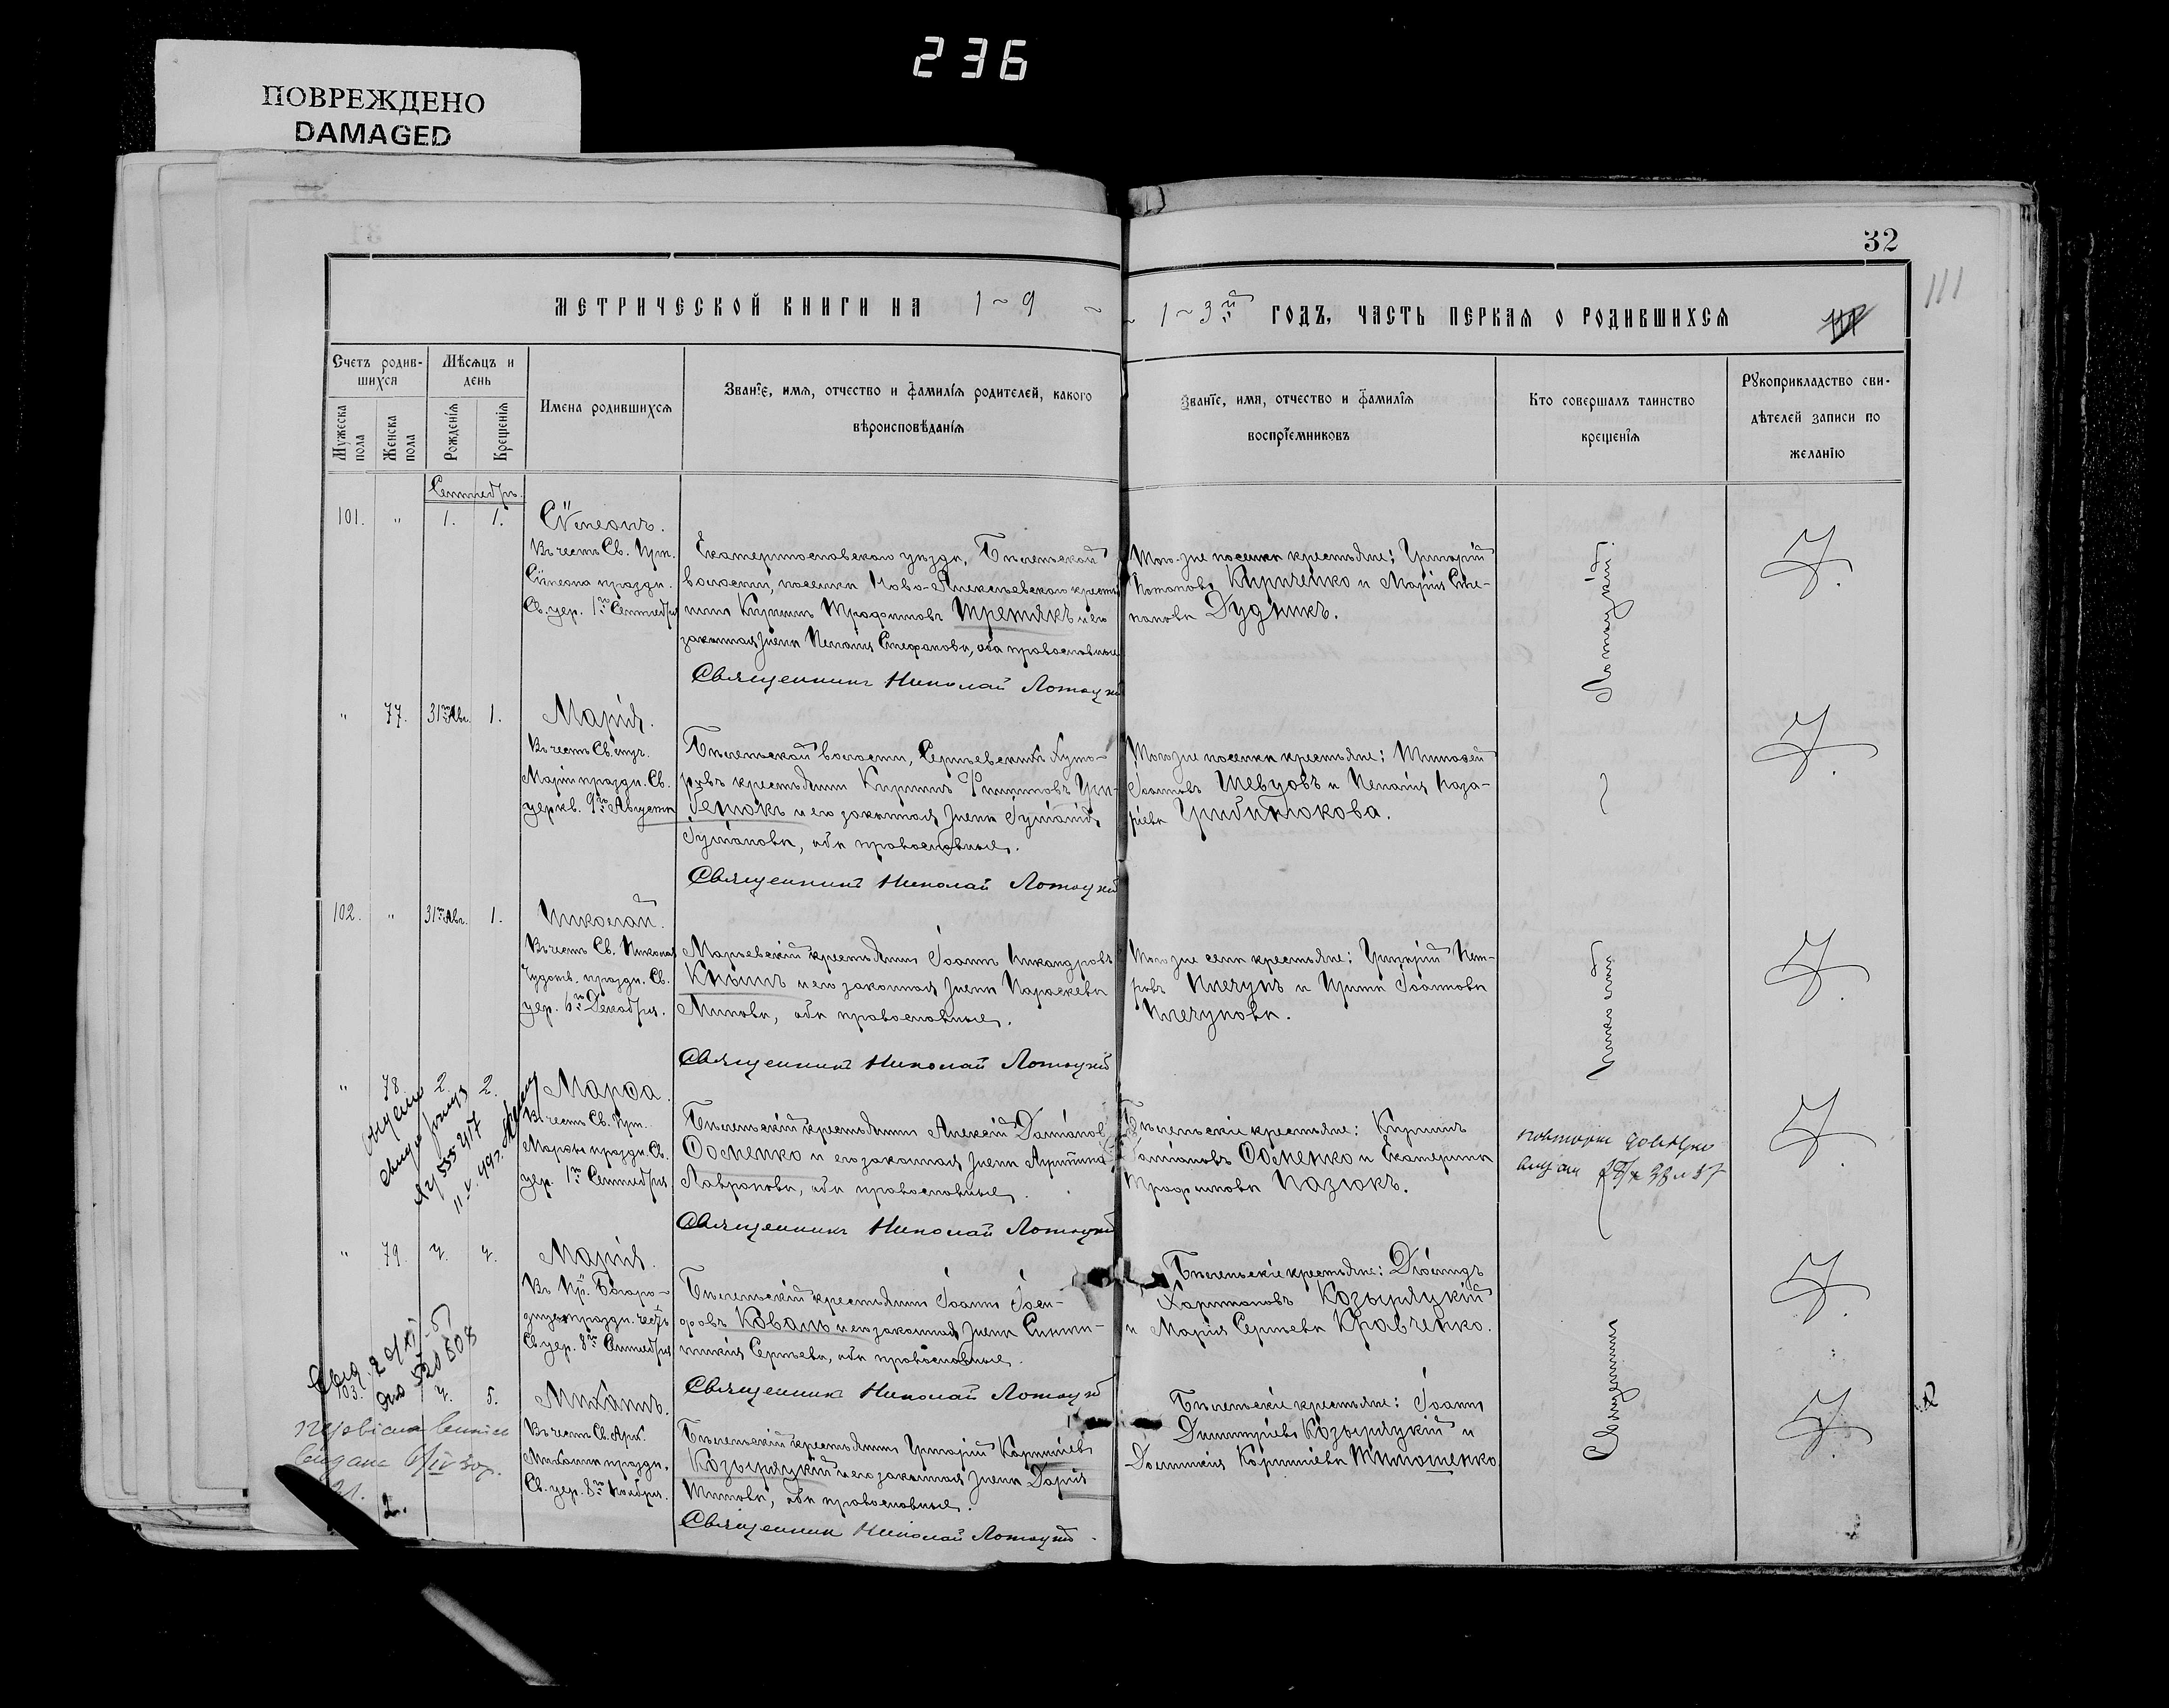 236
ПОВРЕЖДЕНО
DAMAGED
32
111
МЕТРИЧЕСКОЙ КНИГИ НА 1~9
1~3й ГОДЪ, ЧАСТЬ ПЕРВАЯ О РОДИВШИХСЯ
Счетъ родив-
шихся
Мужеска
пола
Женска
пола
Мѣсяцъ и
день
Рожденія
Крещенія
Имена родившихся
Званіе, имя, отчество и фамилія родителей, какого
вѣроисповѣданія
Званіе, имя, отчество и фамилія
воспріемниковъ
Кто совершалъ таинство
крещенія
Рукоприкладство сви-
дѣтелей записи по
желанію
Сентябрь
101. " 1. 1.
Сѵмеонъ.
Въ честь Св. Прп.
Сѵмеона праздн.
Св. цер. 1го Сентября
Екатеринославскаго уѣзда, Бѣленьской
волости, поселка Ново-Алексѣевскаго крестья
нинъ Кириллъ Трофимовъ Третякъ и его
законная жена Меланія Стефанова, оба православные
Священникъ Николай Лотоцкій
Того-же поселка крестьяне: Григорій
Потаповъ Кириченко и Марія Сте-
панова Дудникъ.
" 77. 31го Авг. 1.
Марія.
Въ честь Св. муч.
Маріи праздн. Св.
церкв. 9го Августа
Бѣленьской волости, Сергѣевскихъ Хуто-
ровъ крестьянинъ Кириллъ Филипповъ Гри-
законная жена
оба православные.
Священникъ Николай Лотоцкій
Того же поселка крестьяне: Тимофей
Іоанновъ Шевцовъ и Меланія Наза-
ріева
102. " 31го Авг. 1.
Николай.
Въ честь Св. Николая
Чудотв. праздн. Св.
цер. 6го Декабря.
Марьевскій крестьянинъ Іоаннъ Никандровъ
и его законная жена Параскева
оба православные.
Священникъ Николай Лотоцкій
Того же села крестьяне: Григорій Пет-
ровъ Плечунъ и Ирина Іоаннова
Плечунова.
" 78. 2. 2.
Марѳа.
Въ честь Св. Прп.
Марѳы праздн. Св.
цер. 1го Сентября
Бѣленьскій крестьянинъ Алексій Даміановъ
Ѳоменко и его законная жена
Лаврова, оба православные.
Священникъ Николай Лотоцкій
Бѣленьскіе крестьяне: Кириллъ
Даміановъ Ѳоменко и Екатерина
Трофимова Назюкъ.
" 79. 4. 4.
Марія.
Въ Пр. Богоро-
дицы праздн. честь
Св. цер. 8го Сентября
Бѣленьскій крестьянинъ Іоаннъ Іоси-
фовъ Коваль и его законная жена Синкли-
тикія Сергѣева, оба православные.
Священникъ Николай Лотоцкій
Бѣленьскіе крестьяне: Діомидъ
Харитоновъ Козырицкій
и Марія Сергѣева Кравченко.
103. 4. 5.
Михаилъ.
Въ честь Св. Арх.
Михаила праздн.
Св. цер. 8го Ноября.
Бѣленьскій крестьянинъ Григорій Корниліевъ
Козырицкій и его законная жена Дарія
Титова, оба православные.
Священникъ Николай Лотоцкій
Бѣленьскіе крестьяне: Іоаннъ
Димитріевъ Козырицкій и
Домникія Корниліева Тимошенко
Священникъ
Николай
Лотоцкій